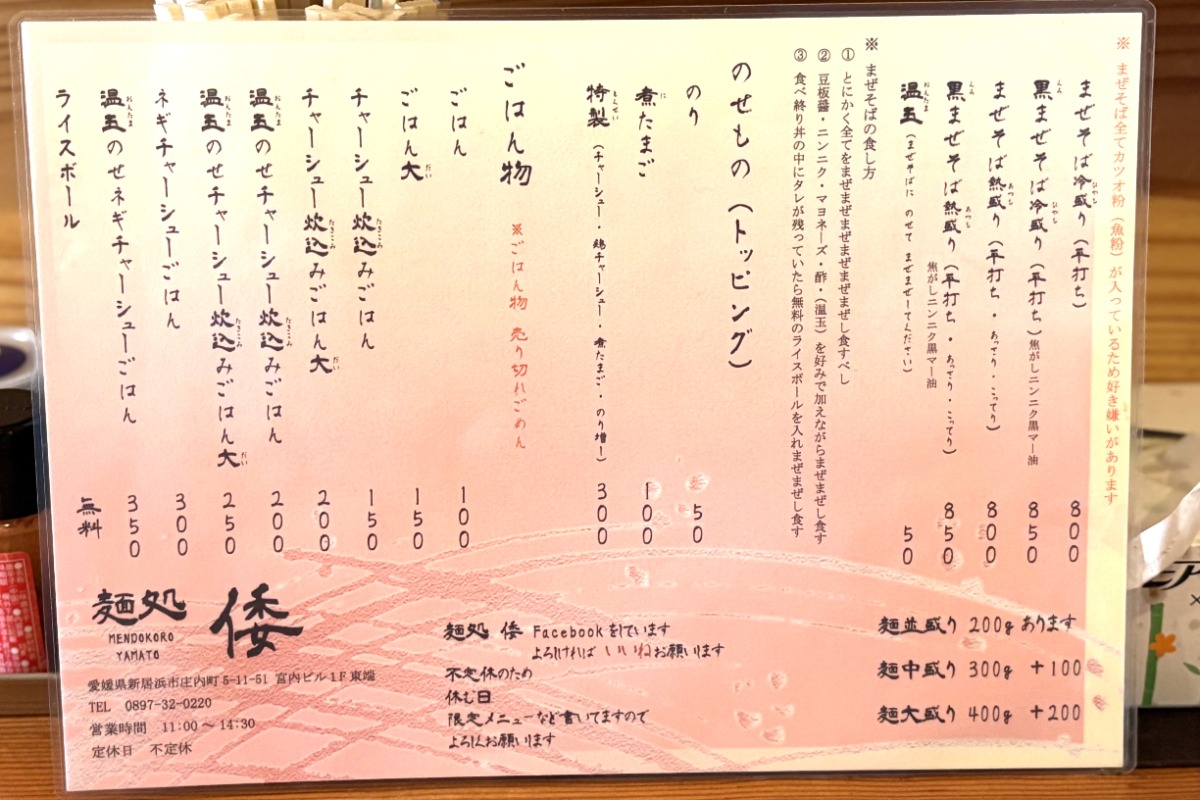 ※ まぜそば全てカツオ粉（魚粉）が入っているため好き嫌いがあります
まぜそば冷盛り（平打ち） 800
黒まぜそば冷盛り（平打ち）焦がしニンニク黒マー油 850
まぜそば熱盛り（平打ち・あっさり・こってり） 800
黒まぜそば熱盛り（平打ち・あっさり・こってり） 850
焦がしニンニク黒マー油
温玉（まぜそばに のせて まぜまぜしてください） 50
※ まぜそばの食し方
① とにかく全てをまぜまぜまぜまぜまぜし食すべし
② 豆板醤・ニンニク・マヨネーズ・酢・（温玉）を好みで加えながらまぜまぜし食す
③ 食べ終り丼の中にタレが残っていたら無料のライスボールを入れまぜまぜし食す
のせもの（トッピング）
のり 50
煮たまご 100
特製（チャーシュー・鶏チャーシュー・煮たまご・のり増し） 300
ごはん物 ※ごはん物 売り切れごめん
ごはん 100
ごはん大 150
チャーシュー炊込みごはん 150
チャーシュー炊込みごはん大 200
温玉のせチャーシュー炊込みごはん 200
温玉のせチャーシュー炊込みごはん大 250
ネギチャーシューごはん 300
温玉のせネギチャーシューごはん 350
ライスボール 無料
麺並盛り 200g あります
麺中盛り 300g +100
麺大盛り 400g +200
麺処 倭 Facebookをしています
よろしければ いいねお願います
不定休のため
休む日
限定メニューなど書いてますので
よろしくお願います
麺処 倭
MENDOKORO
YAMATO
愛媛県新居浜市庄内町5-11-51 宮内ビル1F東端
TEL 0897-32-0220
営業時間 11:00～14:30
定休日 不定休